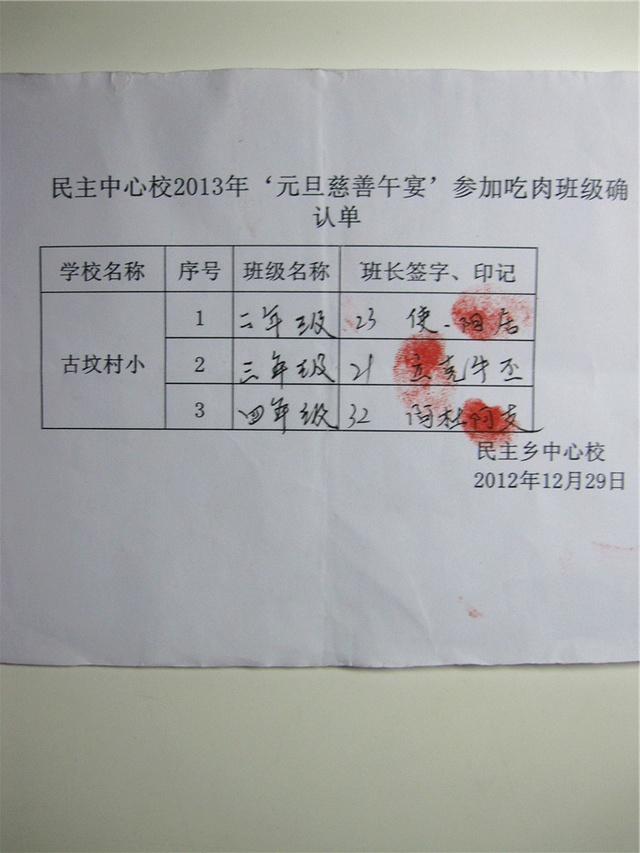 民主中心校2013年‘元旦慈善午宴’参加吃肉班级确
认单
学校名称 序号 班级名称 班长签字、印记
古坟村小
1 二年级 23
2 三年级 21
3 四年级 32
民主乡中心校
2012年12月29日